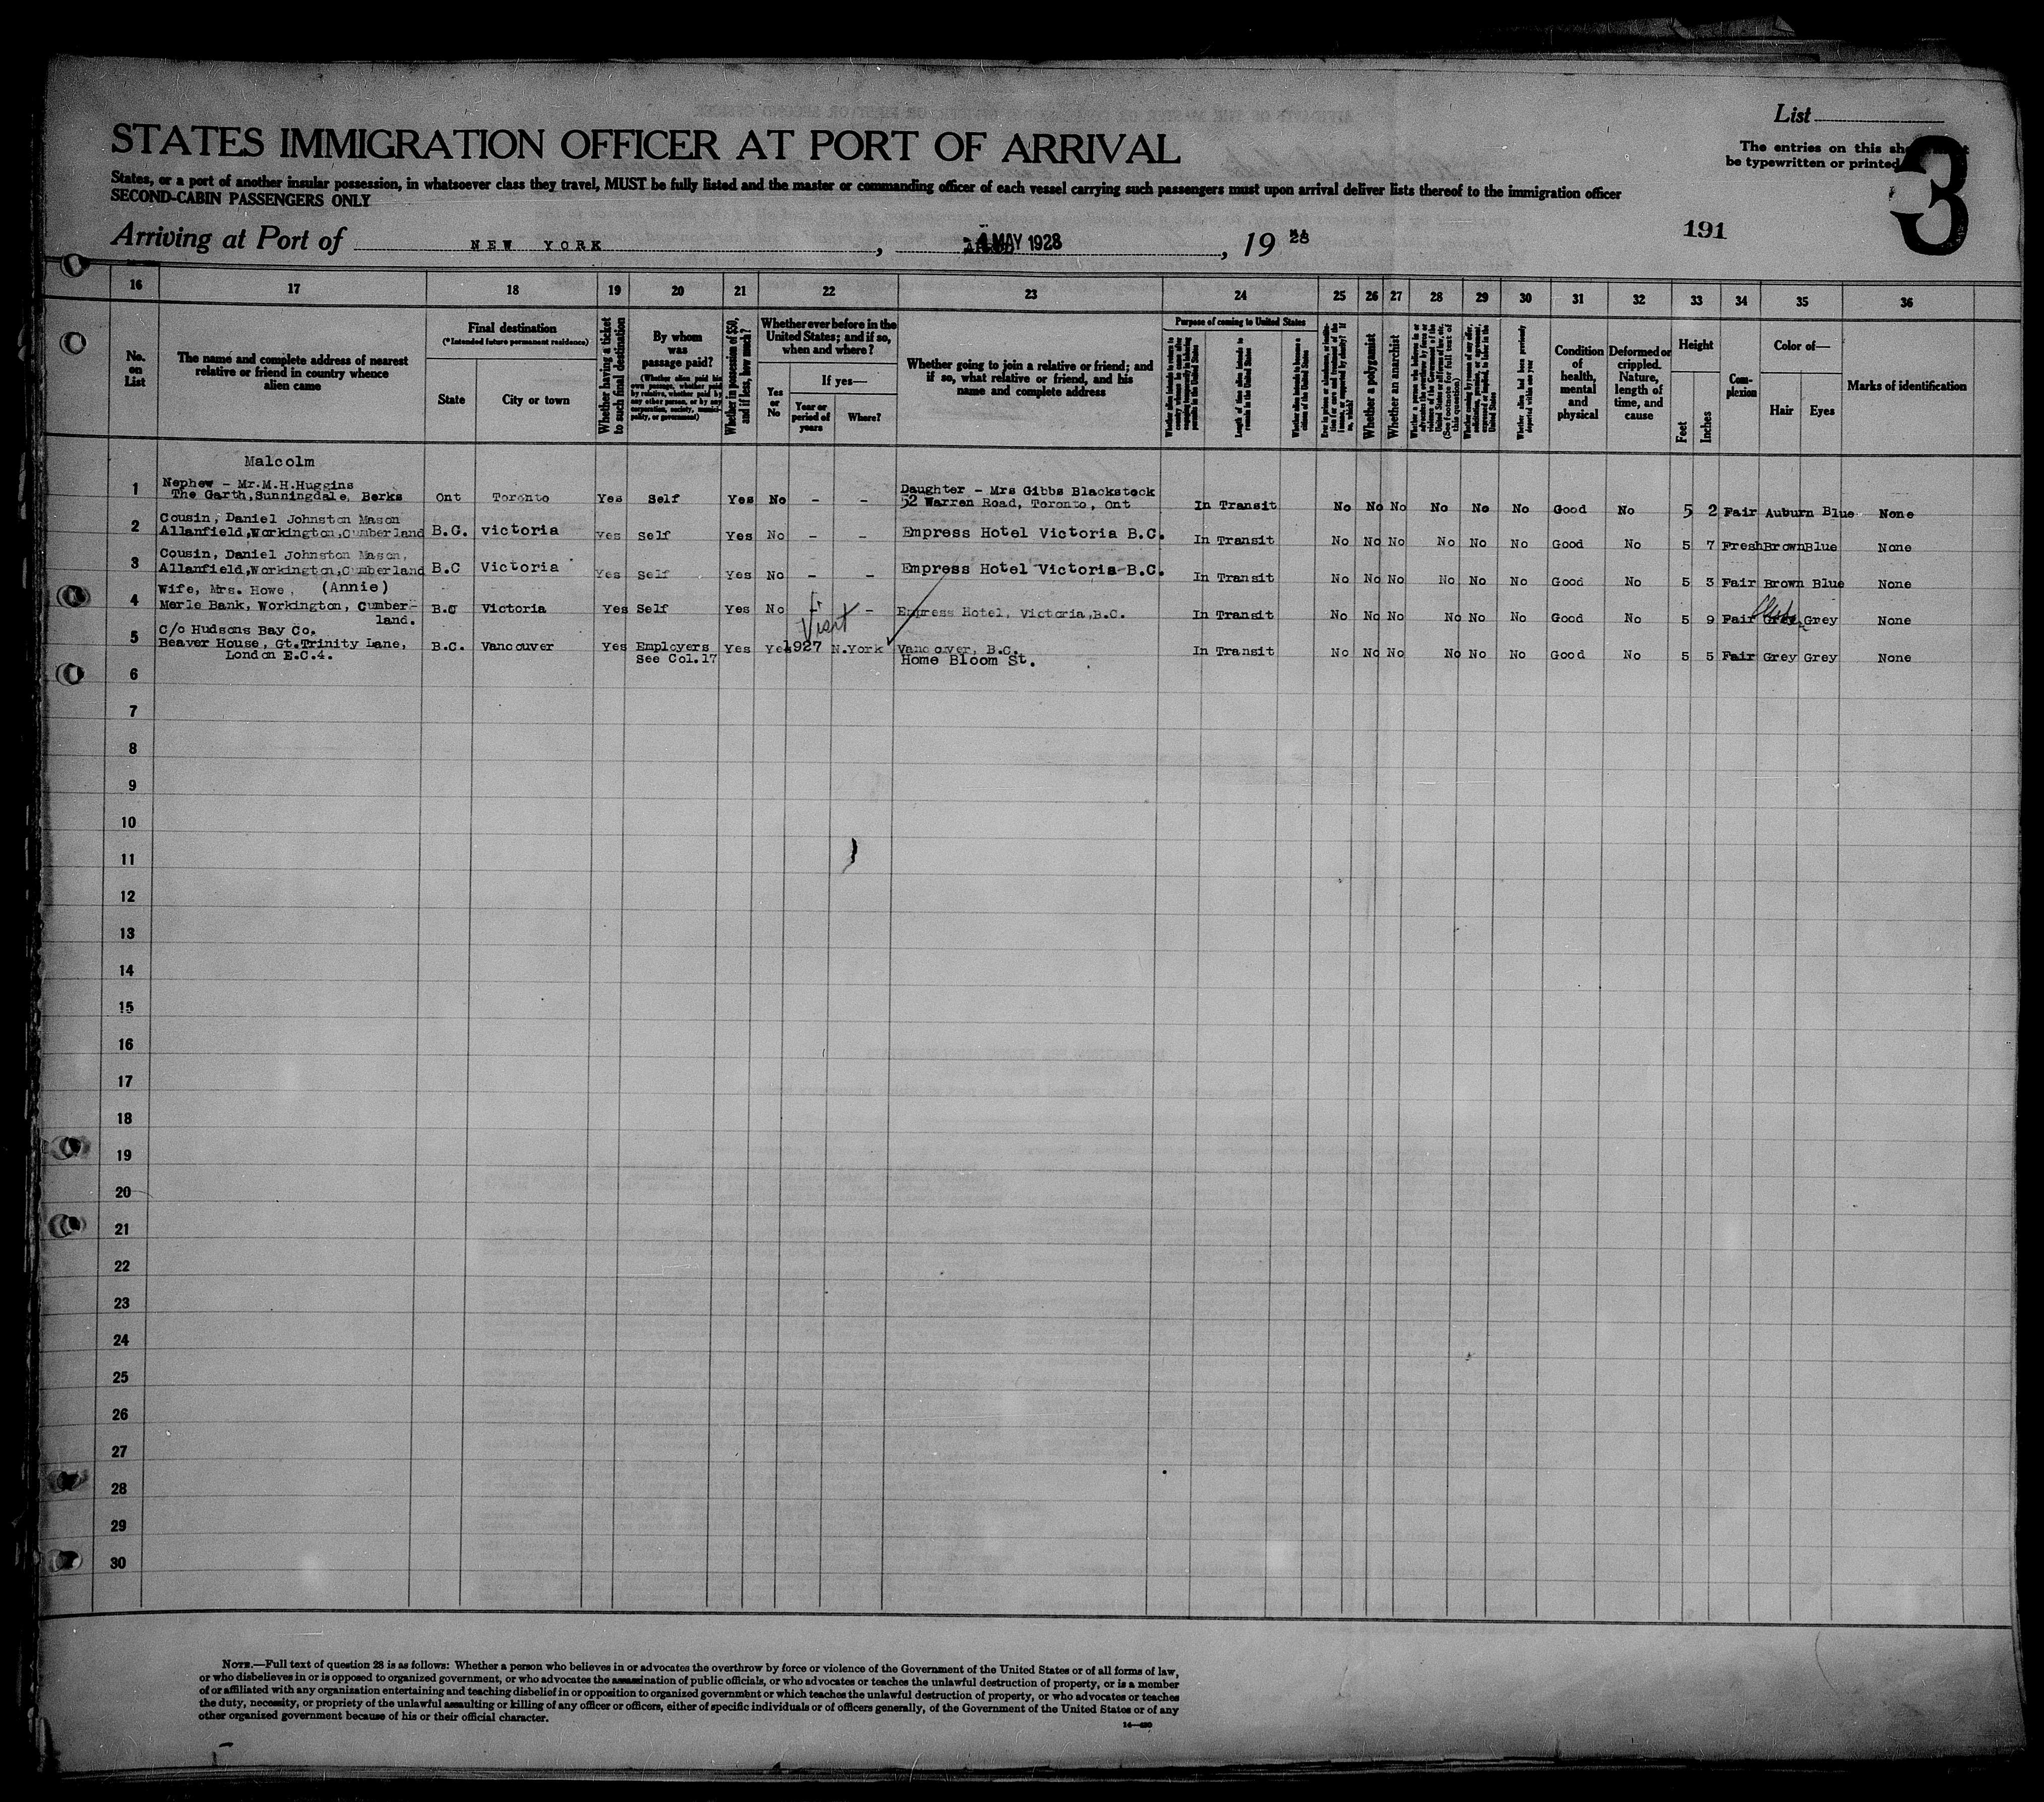 List
STATES IMMIGRATION OFFICER AT PORT OF ARRIVAL
The entries on this
be typewritten or printed
3
States, or a port of another insular possession, in whatsoever class they travel, MUST be fully listed and the master or commanding officer of each vessel carrying such passengers must upon arrival deliver lists thereof to the immigration officer
SECOND-CABIN PASSENGERS ONLY
191
Arriving at Port of NEW YORK, 4 MAY 1928, 19 28
16 17 18 19 20 21 22 23 24 25 26 27 28 29 30 31 32 33 34 35 36
No. on List
The name and complete address of nearest relative or friend in country whence alien came
Final destination
(*Intended future permanent residence)
State
City or town
Whether having a ticket to such final destination
By whom was passage paid?
(Whether alien paid his own passage, whether paid by relative, whether paid by any other person, or by any corporation, society, municipality, or government)
Whether in possession of $50, and if less, how much?
Whether ever before in the United States; and if so, when and where?
Yes or No
If yes—
Year or period of years
Where?
Whether going to join a relative or friend; and if so, what relative or friend, and his name and complete address
Purpose of coming to United States
Length of time alien intends to remain in the United States
Whether alien intends to become a citizen of the United States
Whether a polygamist
Whether an anarchist
Whether alien had been previously deported within one year
Condition of health, mental and physical
Deformed or crippled. Nature, length of time, and cause
Height
Feet
Inches
Complexion
Color of—
Hair
Eyes
Marks of identification
Malcolm
1 Nephew - Mr.M.H.Huggins
The Garth, Sunningdale, Berks Ont Toronto Yes Self Yes No - - Daughter - Mrs Gibbs Blackstock
52 Warren Road, Toronto, Ont In Transit No No No No No No Good No 5 2 Fair Auburn Blue None
2 Cousin, Daniel Johnston Mason
Allanfield, Workington, Cumberland B.C. victoria Yes Self Yes No - - Empress Hotel Victoria B.C. In Transit No No No No No No Good No 5 7 Fresh Brown Blue None
3 Cousin, Daniel Johnston Mason,
Allanfield, Workington, Cumberland B.C Victoria Yes Self Yes No - - Empress Hotel Victoria B.C. In Transit No No No No No No Good No 5 3 Fair Brown Blue None
4 Wife, Mrs. Howe, (Annie)
Merle Bank, Workington, Cumber-
land. B.C Victoria Yes Self Yes No - - Empress Hotel, Victoria, B.C. In Transit No No No No No No Good No 5 9 Fair Grey Grey None
Visit
5 C/o Hudsons Bay Co.
Beaver House, Gt.Trinity Lane,
London E.C.4. B.C. Vancouver Yes Employers
See Col.17 Yes Yes 1927 N.York Vancouver, B.C.
Home Bloom St. In Transit No No No No No No Good No 5 5 Fair Grey Grey None
6
7
8
9
10
11
12
13
14
15
16
17
18
19
20
21
22
23
24
25
26
27
28
29
30
NOTE.—Full text of question 28 is as follows: Whether a person who believes in or advocates the overthrow by force or violence of the Government of the United States or of all forms of law,
or who disbelieves in or is opposed to organized government, or who advocates the assassination of public officials, or who advocates or teaches the unlawful destruction of property, or is a member
of or affiliated with any organization entertaining and teaching disbelief in or opposition to organized government or which teaches the unlawful destruction of property, or who advocates or teaches
the duty, necessity, or propriety of the unlawful assaulting or killing of any officer or officers, either of specific individuals or of officers generally, of the Government of the United States or of any
other organized government because of his or their official character.
14—480